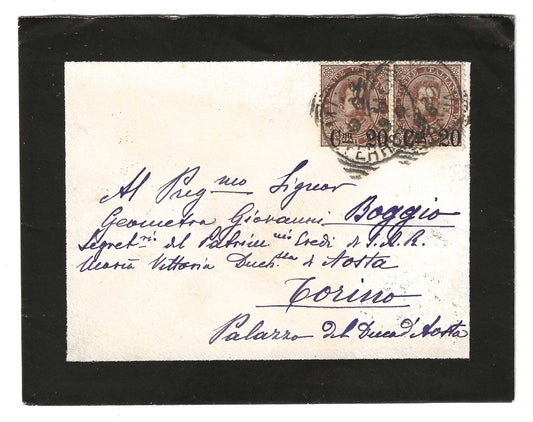 POSTE ITALIANE
Cmi 20 Cmi 20
FERR
Al Preg.mo Signor
Geometra Giovanni Boggio
Segret.rio del Patrim.nio Eredi di S.A.R.
Maria Vittoria Duch.ssa d'Aosta
Torino
Palazzo del Duca d'Aosta